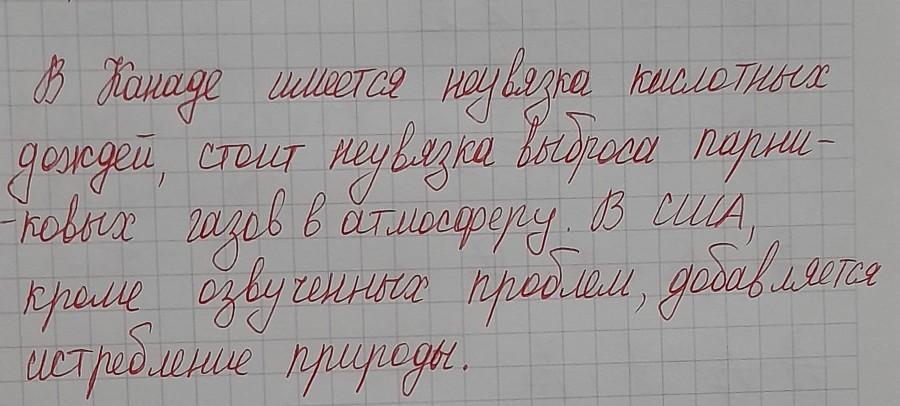 В Канаде имеется неувязка кислотных
дождей, стоит неувязка выброса парни-
-ковых газов в атмосферу. В США,
кроме озвученных проблем, добавляется
истребление природы.